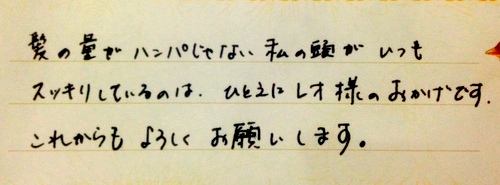 髪の量がハンパじゃない私の頭がいつも
スッキリしているのは、ひとえにレオ様のおかげです.
これからもよろしくお願いします。